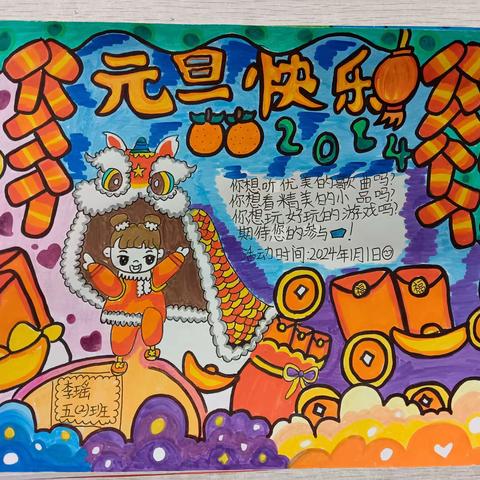 元旦快乐
2024
你想听优美的歌曲吗?
你想看精美的小品吗?
你想玩好玩的游戏吗?
期待您的参与!
活动时间:2024年1月1日
李瑶
五(2)班